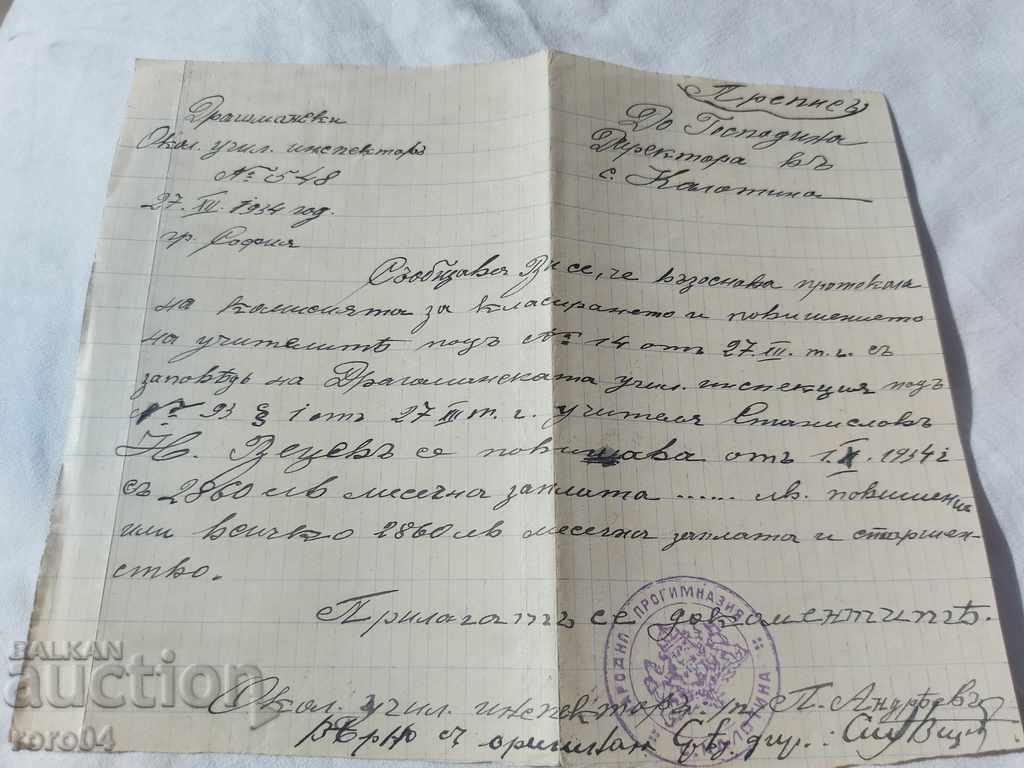 Преписъ
Драгомански
Окол. учил. инспекторъ
№ 548
27. XII. 1934 год.
гр. София
До Господина
Директора въ
с. Калотина
Съобщава Ви се, че възоснова протокола
на комисията за класирането и повишението
на учителитѣ подъ № 14 отъ 27 XII. т. г. съ
заповѣдь на Драгоманската учил. инспекция подъ
№ 93 § 1 отъ 27 XII т. г. учителя Станиславъ
Н. Вецевъ се повишава отъ 1. 1934 г
съ 2860 лв месечна заплата ...... лв. повишение
или всичко 2860 лв месечна заплата и старшен-
ство.
Прилагатъ се документитѣ.
Окол. учил. инспекторъ: п. П. Андрѣевъ
Вѣрно с оригинал дир.:
НАРОДНА ПРОГИМНАЗИЯ КАЛОТИНА
BALKAN
auction
koro04